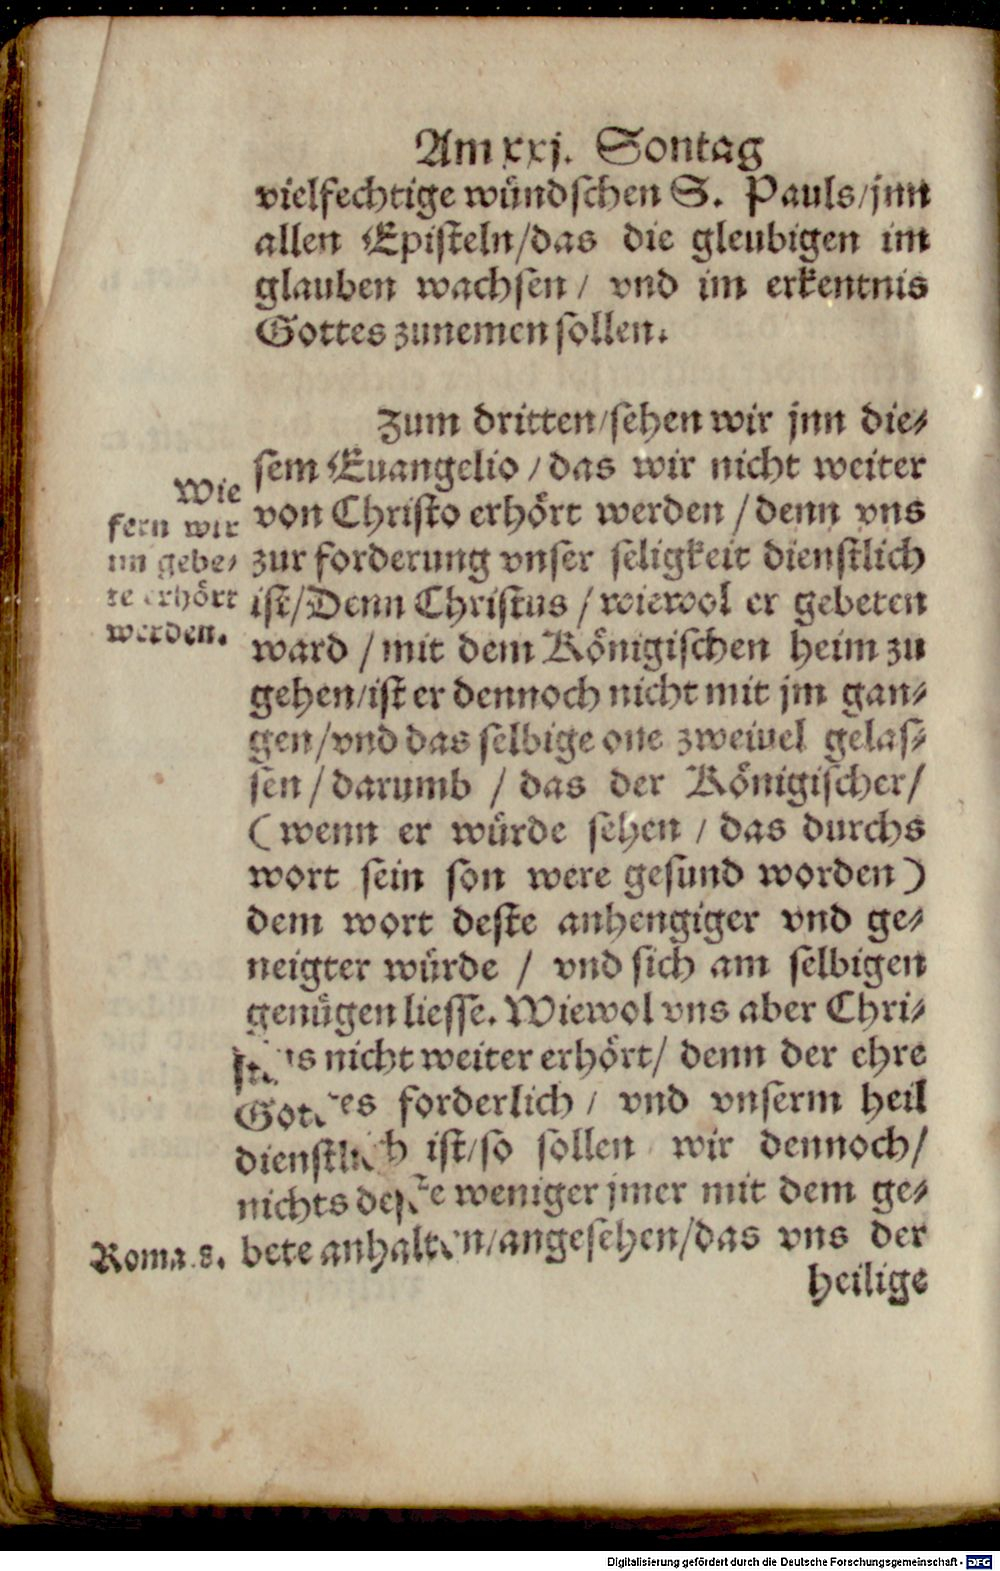 Am xxj. Sontag
vielfechtige wündschen S. Pauls/jnn
allen Episteln/das die gleubigen im
glauben wachsen/ vnd im erkentnis
Gottes zunemen sollen.
Zum dritten/sehen wir jnn die⸗
sem Euangelio/das wir nicht weiter
von Christo erhört werden/denn vns
zur forderung vnser seligkeit dienstlich
ist/Denn Christus/wiewol er gebeten
ward/mit dem Königischen heim zu
gehen/ist er dennoch nicht mit jm gan⸗
gen/vnd das selbige one zweiuel gelas⸗
sen/darumb/das der Königischer/
(wenn er würde sehen/das durchs
wort sein son were gesund worden)
dem wort deste anhengiger vnd ge⸗
neigter würde/vnd sich am selbigen
genügen liesse. Wiewol vns aber Chri⸗
stus nicht weiter erhört/denn der ehre
Gottes forderlich/vnd vnserm heil
dienstlich ist/so sollen wir dennoch/
nichts deste weniger jmer mit dem ge⸗
bete anhalten/angesehen/das vns der
heilige
Wie
fern wir
im gebe⸗
te erhört
werden.
Roma.8.
Digitalisierung gefördert durch die Deutsche Forschungsgemeinschaft - DFG